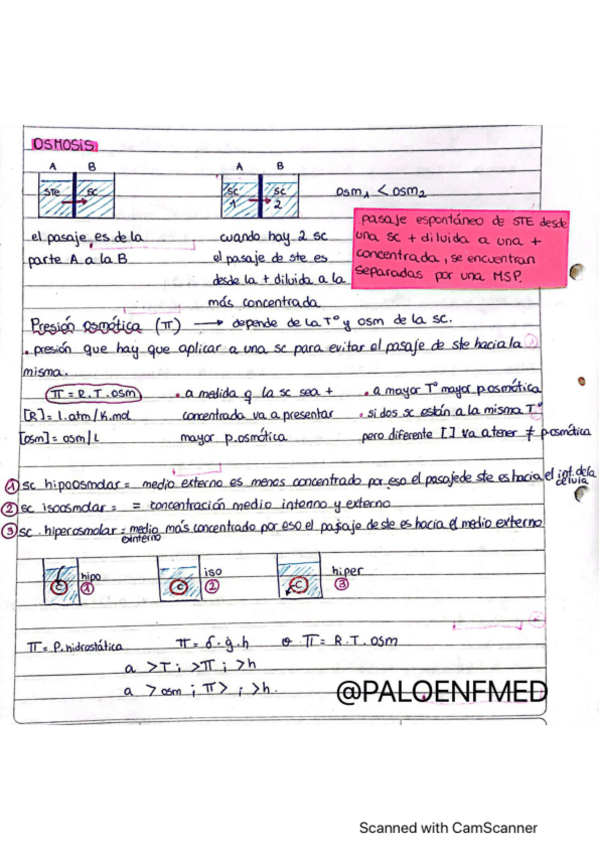 OSMOSIS
A B
STE SC
A B
SC 1 SC 2
osm1 < osm2
el pasaje es de la
parte A a la B
cuando hay 2 sc
el pasaje de ste es
desde la + diluida a la
más concentrada
pasaje espontáneo de STE desde
una sc + diluida a una +
concentrada, se encuentran
separadas por una MSP.
Presión osmótica (π) → depende de la Tº y osm de la sc.
. presión que hay que aplicar a una sc para evitar el pasaje de ste hacia la
misma.
π = R.T.osm
[R] = l.atm/K.mol
[osm] = osm/L
. a medida q la sc sea +
concentrada va a presentar
mayor p.osmótica
. a mayor Tº mayor p.osmótica
. si dos sc están a la misma Tº
pero diferente [ ] va a tener ≠ p.osmótica
① sc hipoosmolar = medio externo es menos concentrado por eso el pasaje de ste es hacia el int. de la
célula
② sc isoosmolar = = concentración medio interno y externo
③ sc. hiperosmolar = medio más concentrado por eso el pasaje de ste es hacia el medio externo
externo
C hipo ①
C iso ②
C hiper ③
π = P. hidrostática π = δ.g.h o π = R.T.osm
a >T ; >π ; >h
a > osm ; π> ; >h.
@PALOENFMED
Scanned with CamScanner